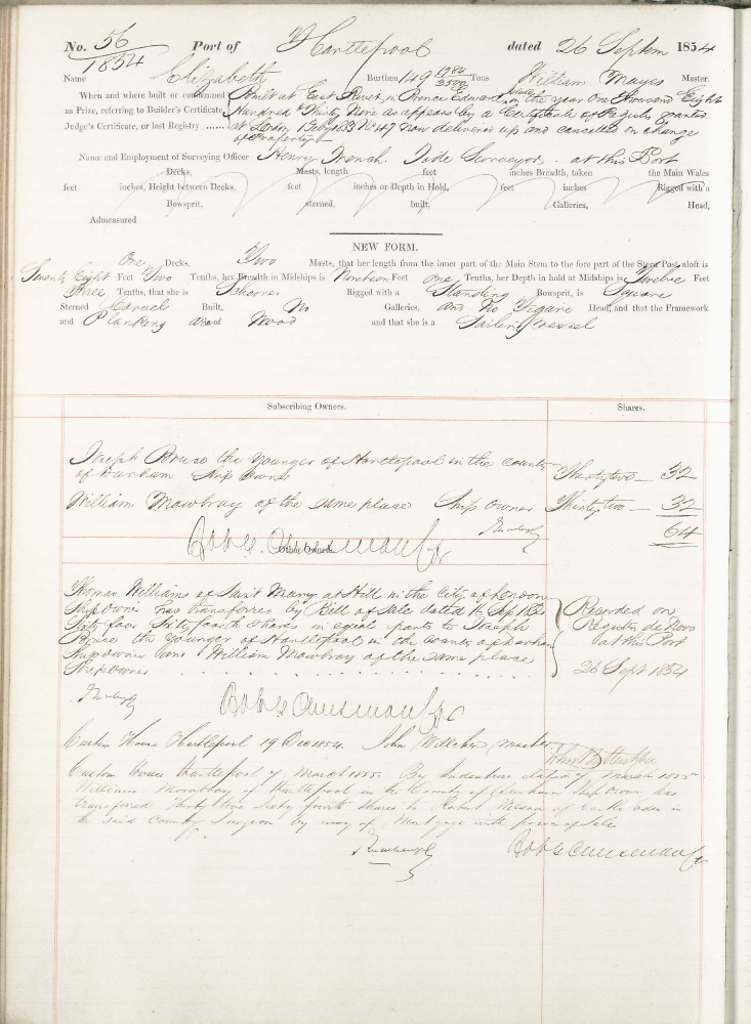 No. 56/1854 Port of Hartlepool dated 26 Septem 1854
Name Elizabeth Burthen 49 1782/3500 Tons William Mayes Master.
When and where built or condemned Built at East River in Prince Edward Island in the year One thousand Eight
as Prize, referring to Builder's Certificate, Hundred & Thirty Nine as appears by a Certificate of Registry granted
Judge's Certificate, or last Registry ...... at London No 47 now delivered up and cancelled on change
of Property
Name and Employment of Surveying Officer Henry French Tide Surveyor at this Port
Decks, Masts, length feet inches Breadth, taken the Main Wales
feet inches, Height between Decks, feet inches or Depth in Hold, feet inches Rigged with a
Bowsprit, sterned, built, Galleries, Head,
Admeasured
NEW FORM.
One Decks, Two Masts, that her length from the inner part of the Main Stem to the fore part of the Stern Post aloft is
Seventy Eight Feet Two Tenths, her Breadth in Midships is Nineteen Feet One Tenths, her Depth in hold at Midships is Twelve Feet
Three Tenths, that she is Schooner Rigged with a Standing Bowsprit, is Square
Sterned Carvel Built, No Galleries, and No Figure Head, and that the Framework
and Planking are of Wood and that she is a Sailing Vessel
Subscribing Owners. Shares.
Joseph the younger of Hartlepool in the County
of Durham Ship Owner Thirty two 32
William Mowbray of the same place Ship Owner Thirty two 32
64
Other Owners.
Thomas Williams of Saint Mary at Hill in the City of London
Ship Owner has transferred by Bill of Sale dated Sep 1854
Sixty four Sixty fourth Shares in equal parts to Joseph
the younger of Hartlepool in the County of Durham
Ship owner and William Mowbray of the same place
Ship Owner
Recorded on
Registry de Novo
at this Port
26 Sept 1854
Custom House Hartlepool 19 Dec 1854. John Master
Custom House Hartlepool 7 March 1855. By Indenture dated 7 March 1855
William Mowbray of Hartlepool in the County of Durham Ship Owner has
transferred Thirty two Sixty fourth Shares to Robert of in
the said County Surgeon by way of Mortgage with power of Sale